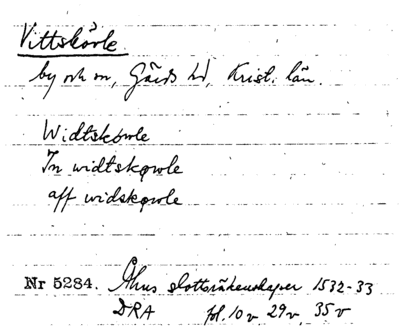 Vittskövle
by och sn, Gärds hd, Krist. län.
Widtskøwle
In widtskøwle
aff widskøwle
Nr 5284. Åhus slottsräkenskaper 1532-33
DRA fol. 10v 29v, 35v